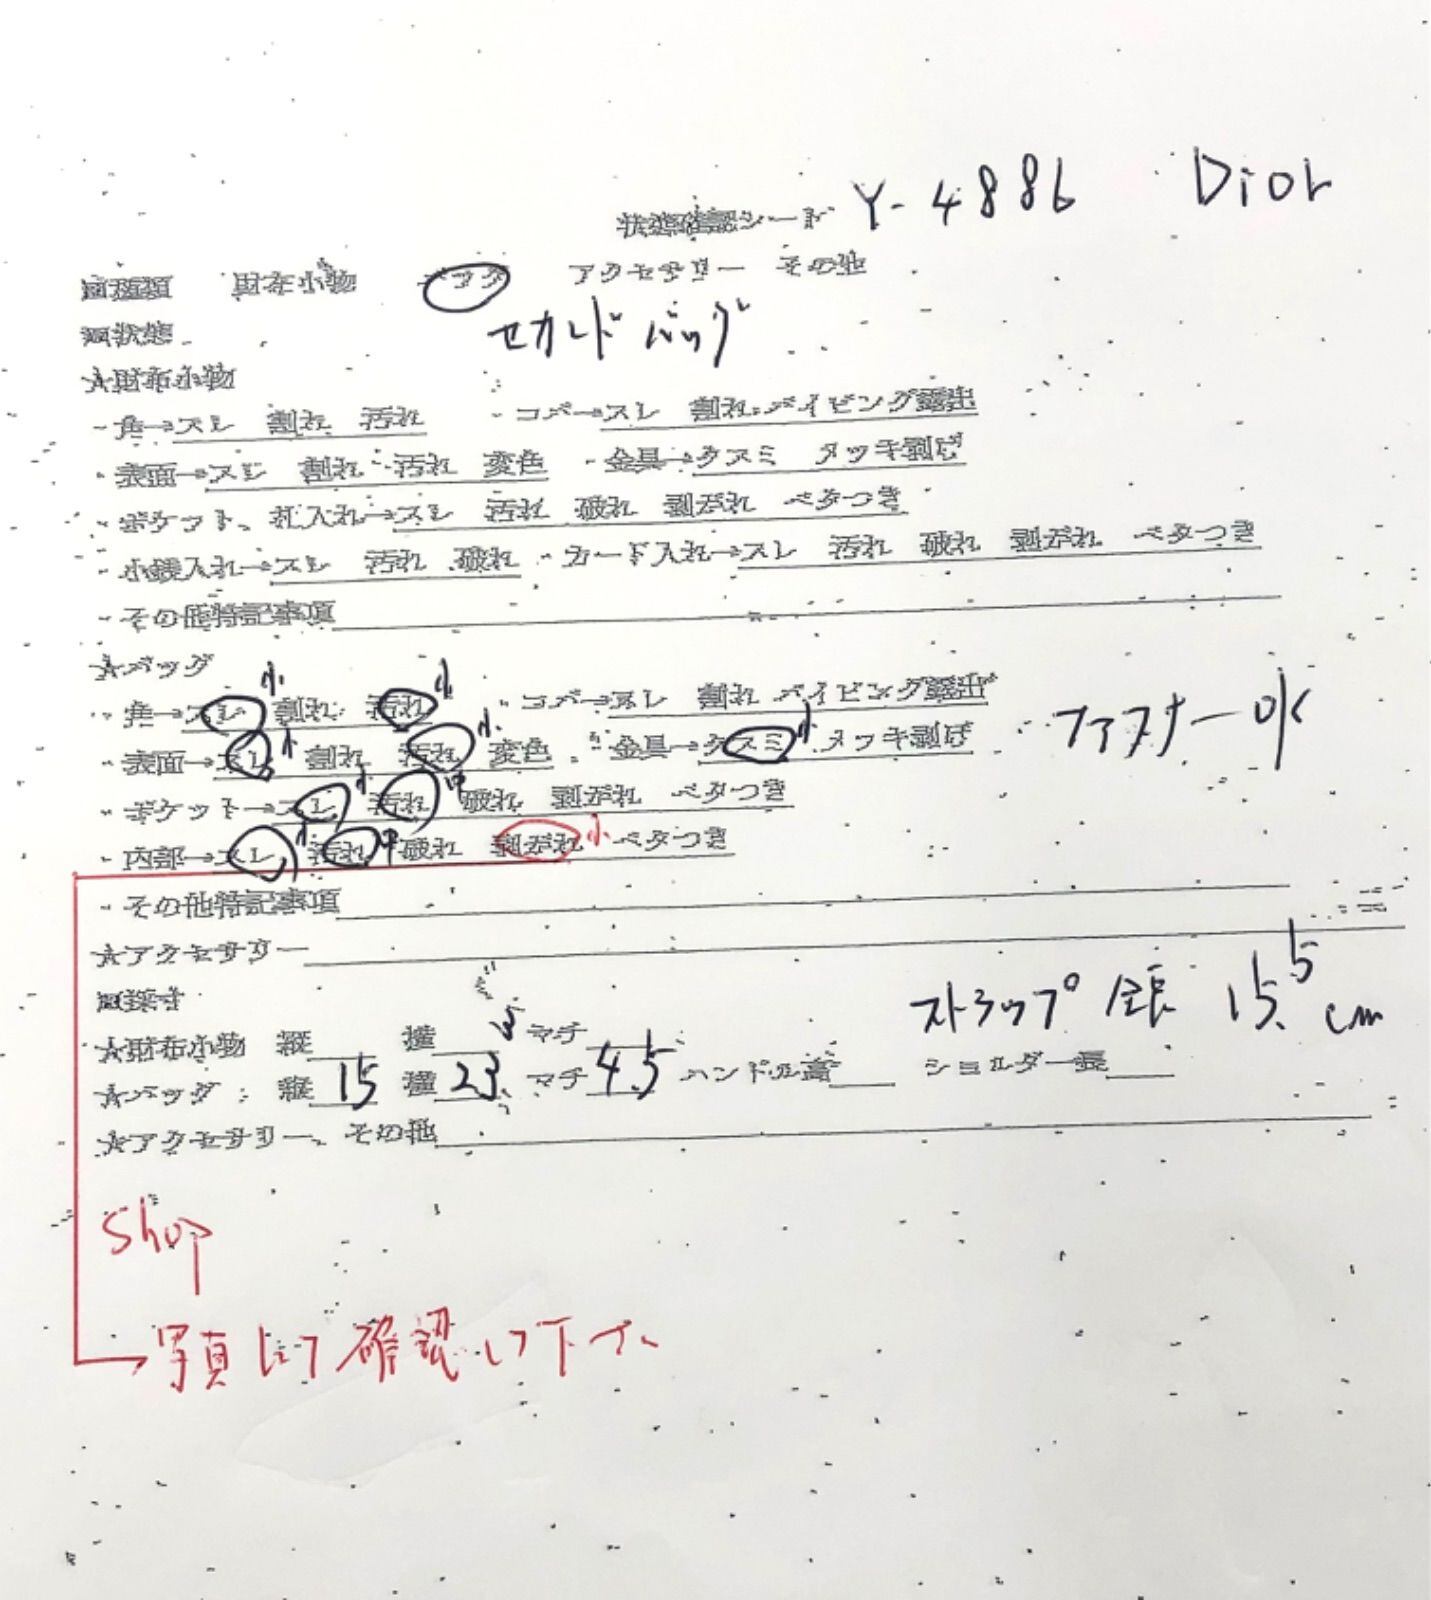 状態確認シート Y-4886 Dior
■種類 財布小物 バッグ アクセサリー その他
■状態 セカンドバッグ
★財布小物
・角→スレ 割れ 汚れ ・コバ→スレ 割れ パイピング露出
・表面→スレ 割れ 汚れ 変色 ・金具→クスミ メッキ剥げ
・ポケット、札入れ→スレ 汚れ 破れ 剥がれ ベタつき
・小銭入れ→スレ 汚れ 破れ ・カード入れ→スレ 汚れ 破れ 剥がれ ベタつき
・その他特記事項
★バッグ
・角→スレ小 割れ 汚れ小 ・コバ→スレ 割れ パイピング露出 ファスナーOK
・表面→スレ小 割れ 汚れ小 変色 ・金具→クスミ小 メッキ剥げ
・ポケット→スレ小 汚れ中 破れ 剥がれ ベタつき
・内部→スレ小 汚れ中 破れ 剥がれ小 ベタつき
・その他特記事項
★アクセサリー
■採寸 ストラップ全長 15.5cm
★財布小物 縦 横 マチ
★バッグ: 縦15 横23. マチ4.5 ハンドル高 ショルダー長
★アクセサリー、その他
Shop
→写真にて確認して下さい